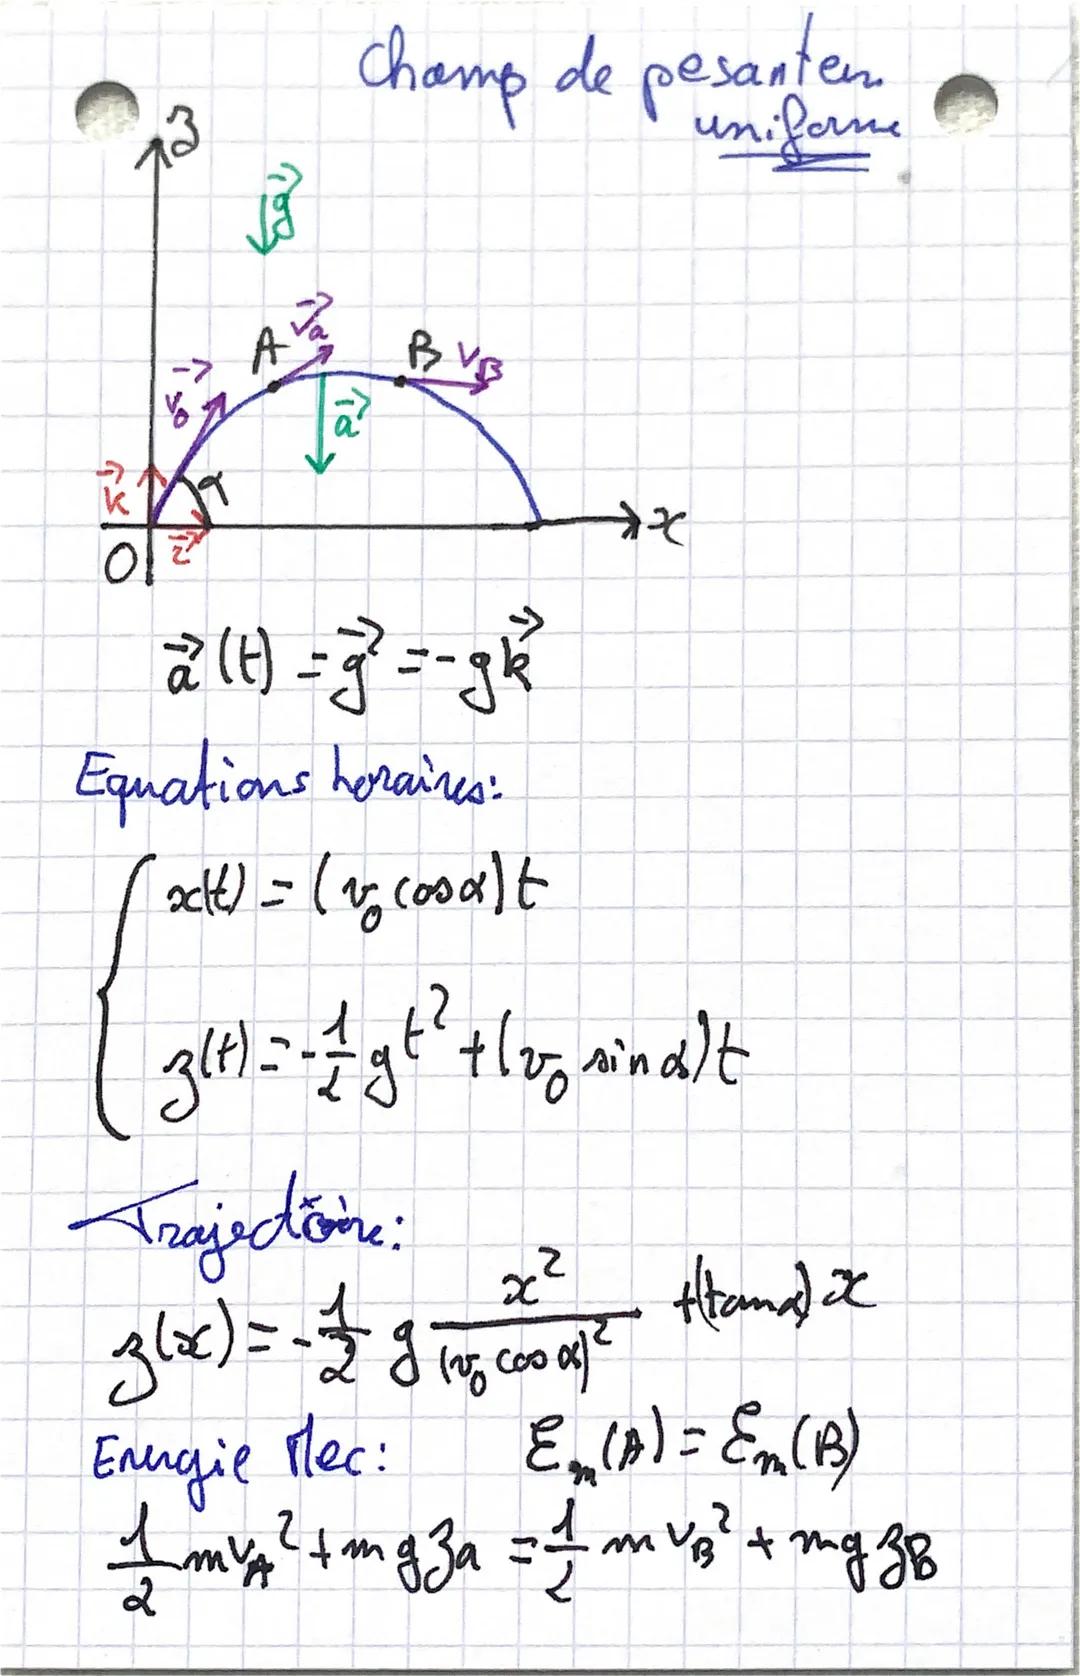 Champ de pesanteur
uniforme
z
g⃗
A v⃗a B vB
v⃗0
a⃗
k⃗ α
O i⃗ x
a⃗(t) = g⃗ = -gk⃗
Equations horaires:
x(t) = (v₀ cosα)t
z(t) = -1/2 gt² + (v₀ sinα)t
Trajectoire:
z(x) = -1/2 g x²/(v₀ cosα)² + (tanα)x
Energie Mec: Em(A) = Em(B)
1/2 mvA² + mgza = 1/2 mvB² + mgzB